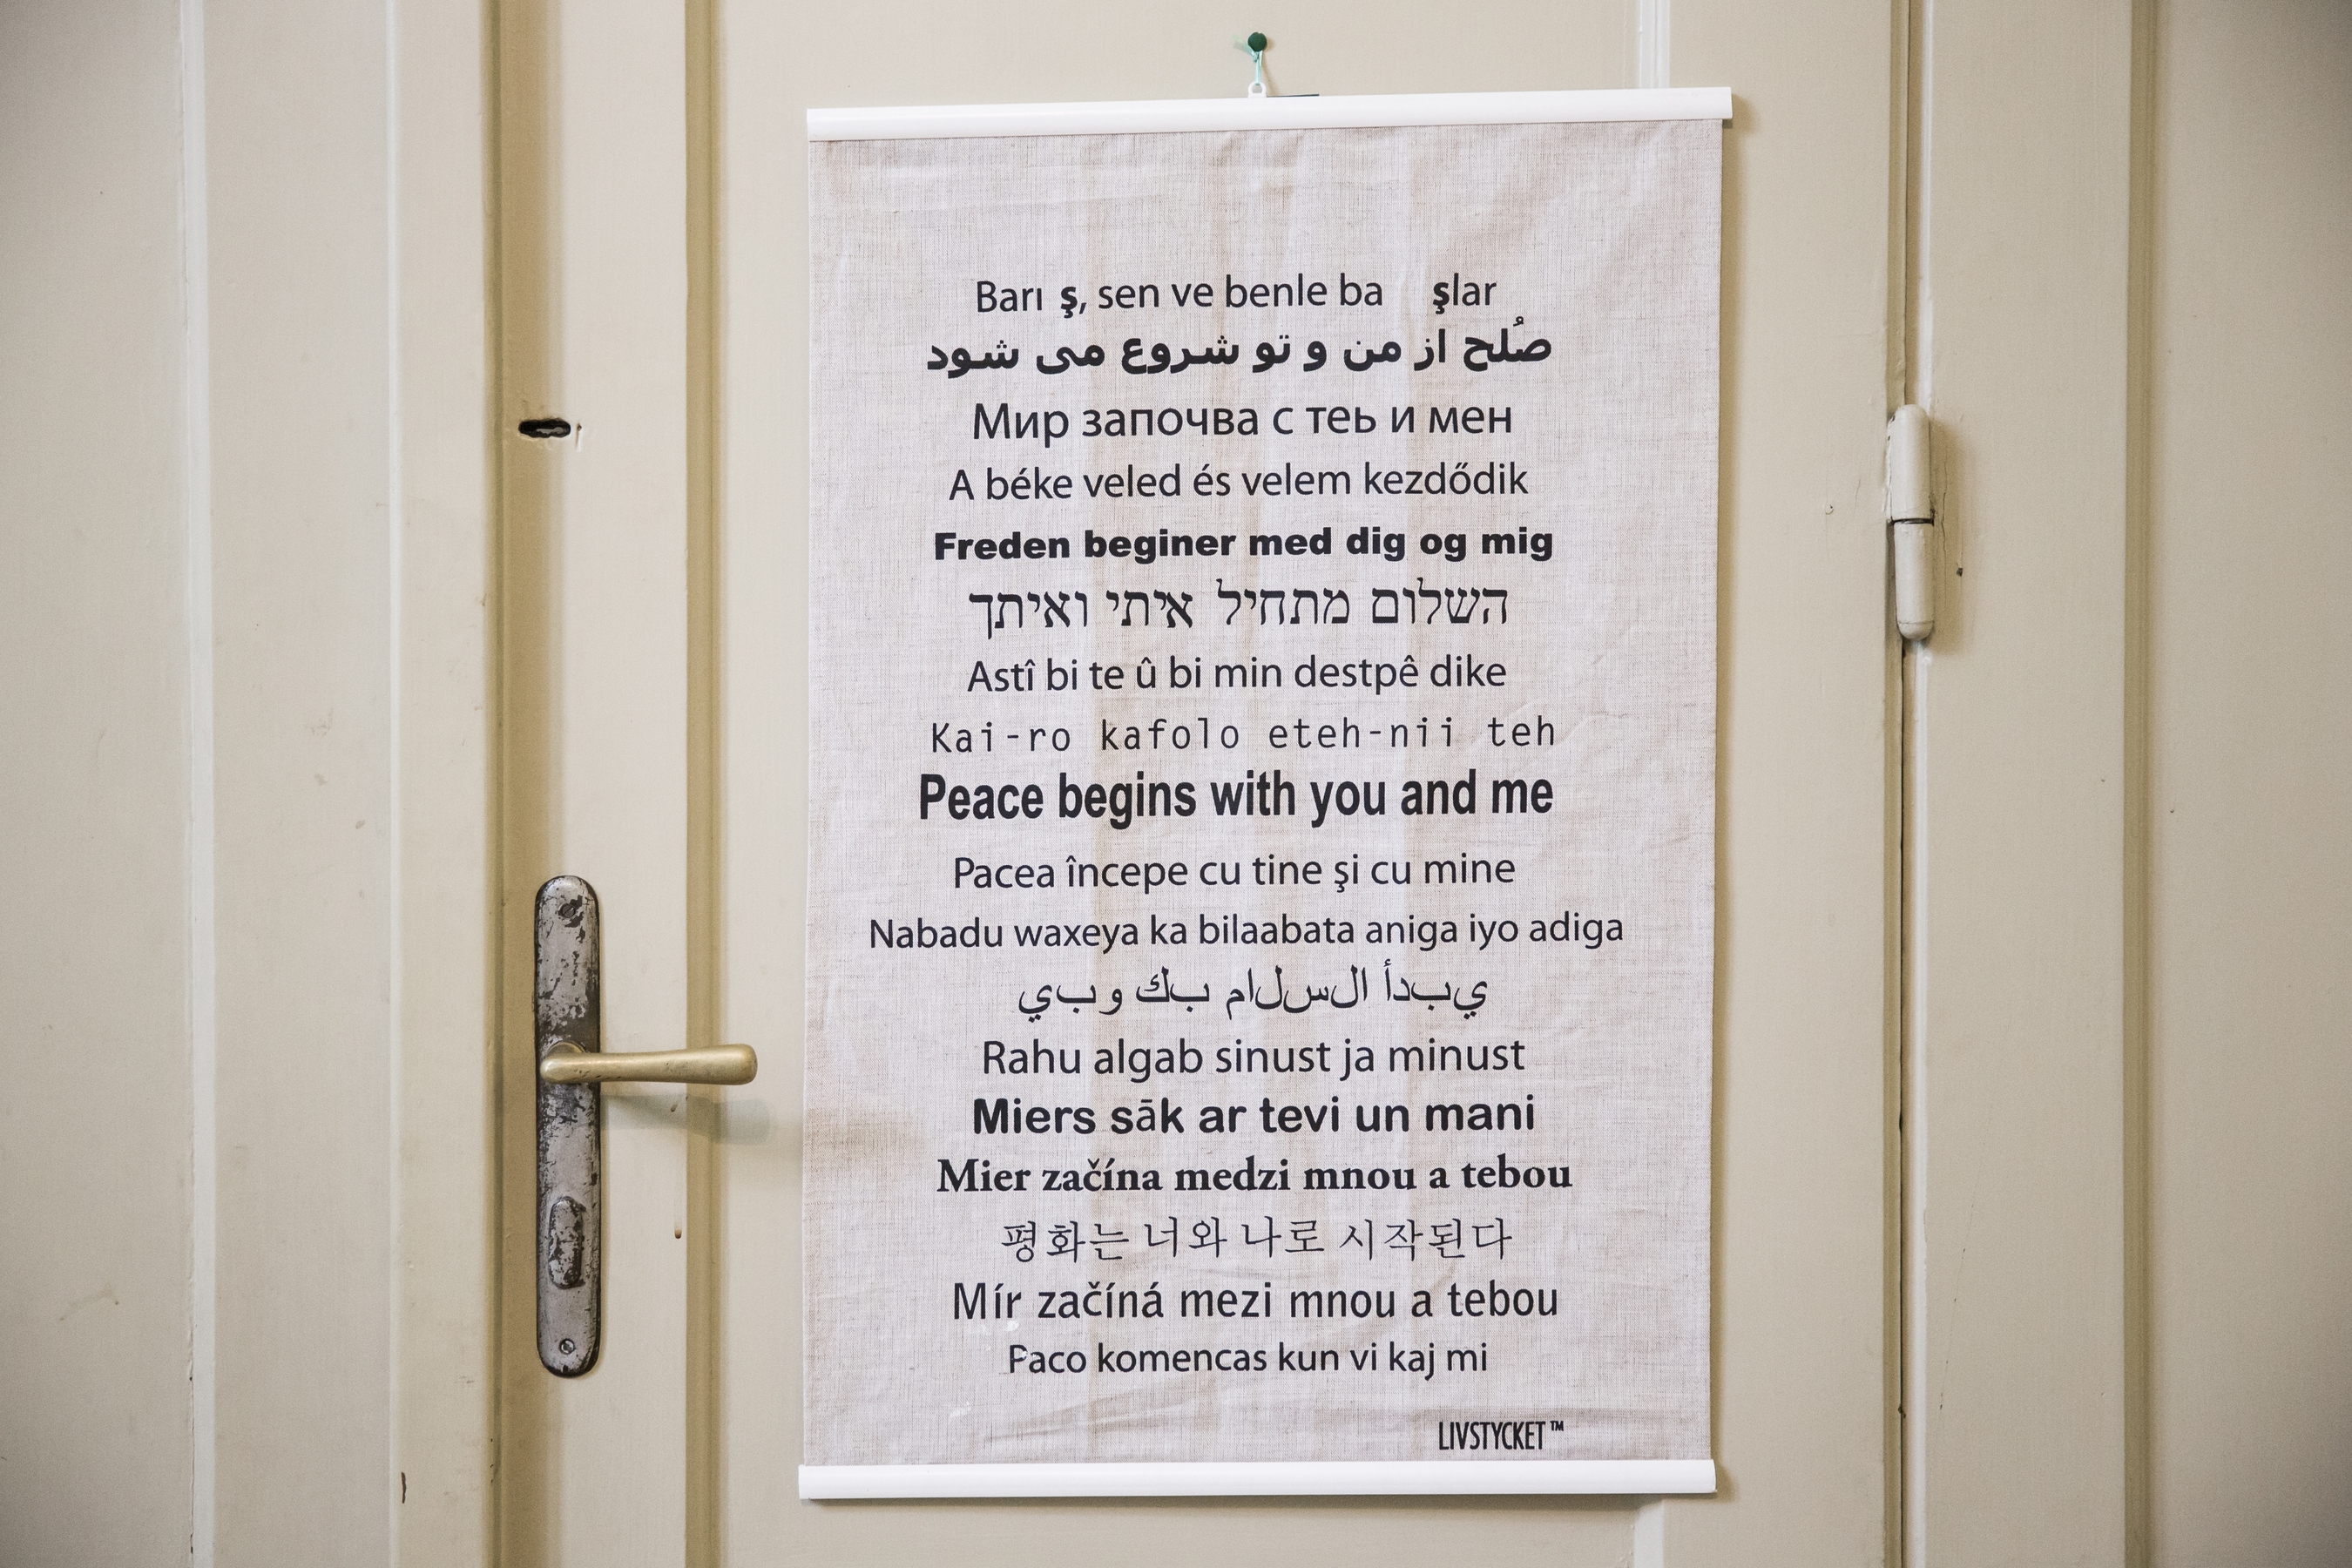 Barı ş, sen ve benle ba şlar
صُلح از من و تو شروع می شود
Мир започва с теь и мен
A béke veled és velem kezdődik
Freden beginer med dig og mig
השלום מתחיל איתי ואיתך
Astî bi te û bi min destpê dike
Kai-ro kafolo eteh-nii teh
Peace begins with you and me
Pacea începe cu tine şi cu mine
Nabadu waxeya ka bilaabata aniga iyo adiga
يبدأ السلام بك وبي
Rahu algab sinust ja minust
Miers sāk ar tevi un mani
Mier začína medzi mnou a tebou
평화는 너와 나로 시작된다
Mír začíná mezi mnou a tebou
Paco komencas kun vi kaj mi
LIVSTYCKET™